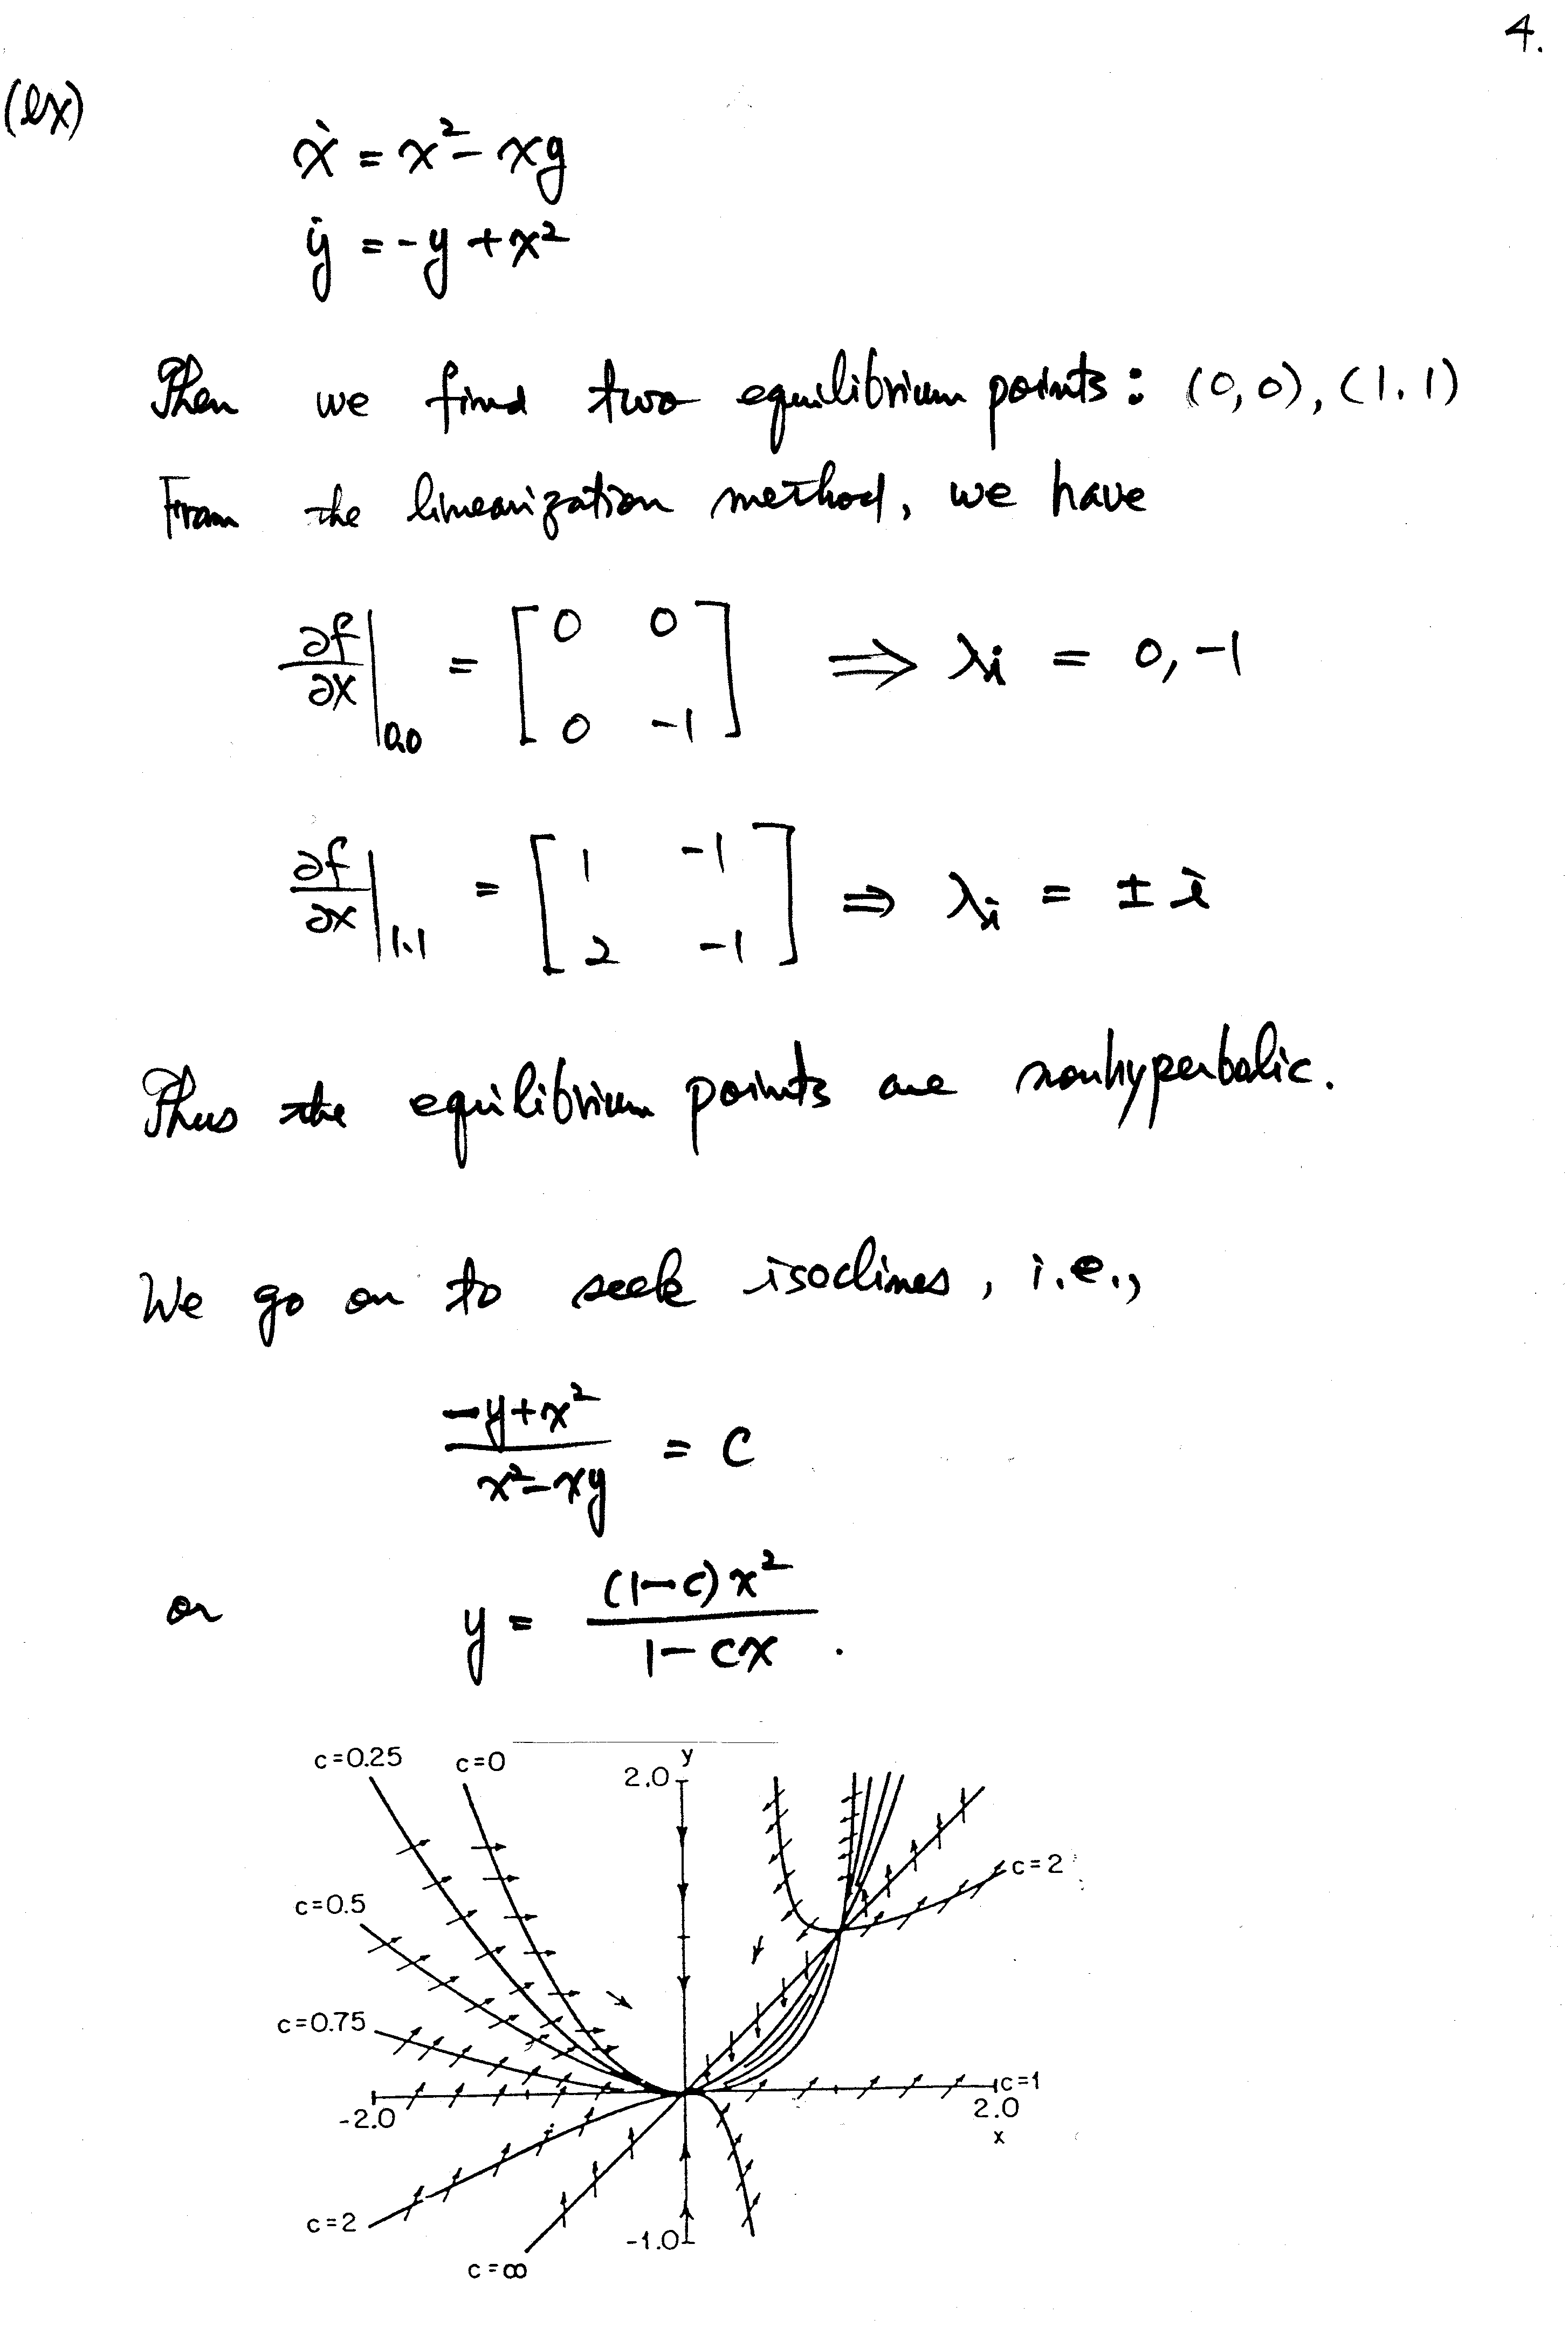 4.
(ex)
ẋ = x² - xy
ẏ = -y + x²
Then we find two equilibrium points: (0,0), (1,1)
From the linearization method, we have
∂f/∂x |0,0 = [0 0; 0 -1] ⟹ λi = 0, -1
∂f/∂x |1,1 = [1 -1; 2 -1] ⟹ λi = ± i
Thus the equilibrium points are nonhyperbolic.
We go on to seek isoclines, i.e.,
(-y+x²)/(x²-xy) = c
or y = (1-c)x²/(1-cx).
c=0.25 c=0 y
2.0
c=2
c=0.5
c=0.75
c=1
-2.0 2.0
x
c=2
-1.0
c=∞